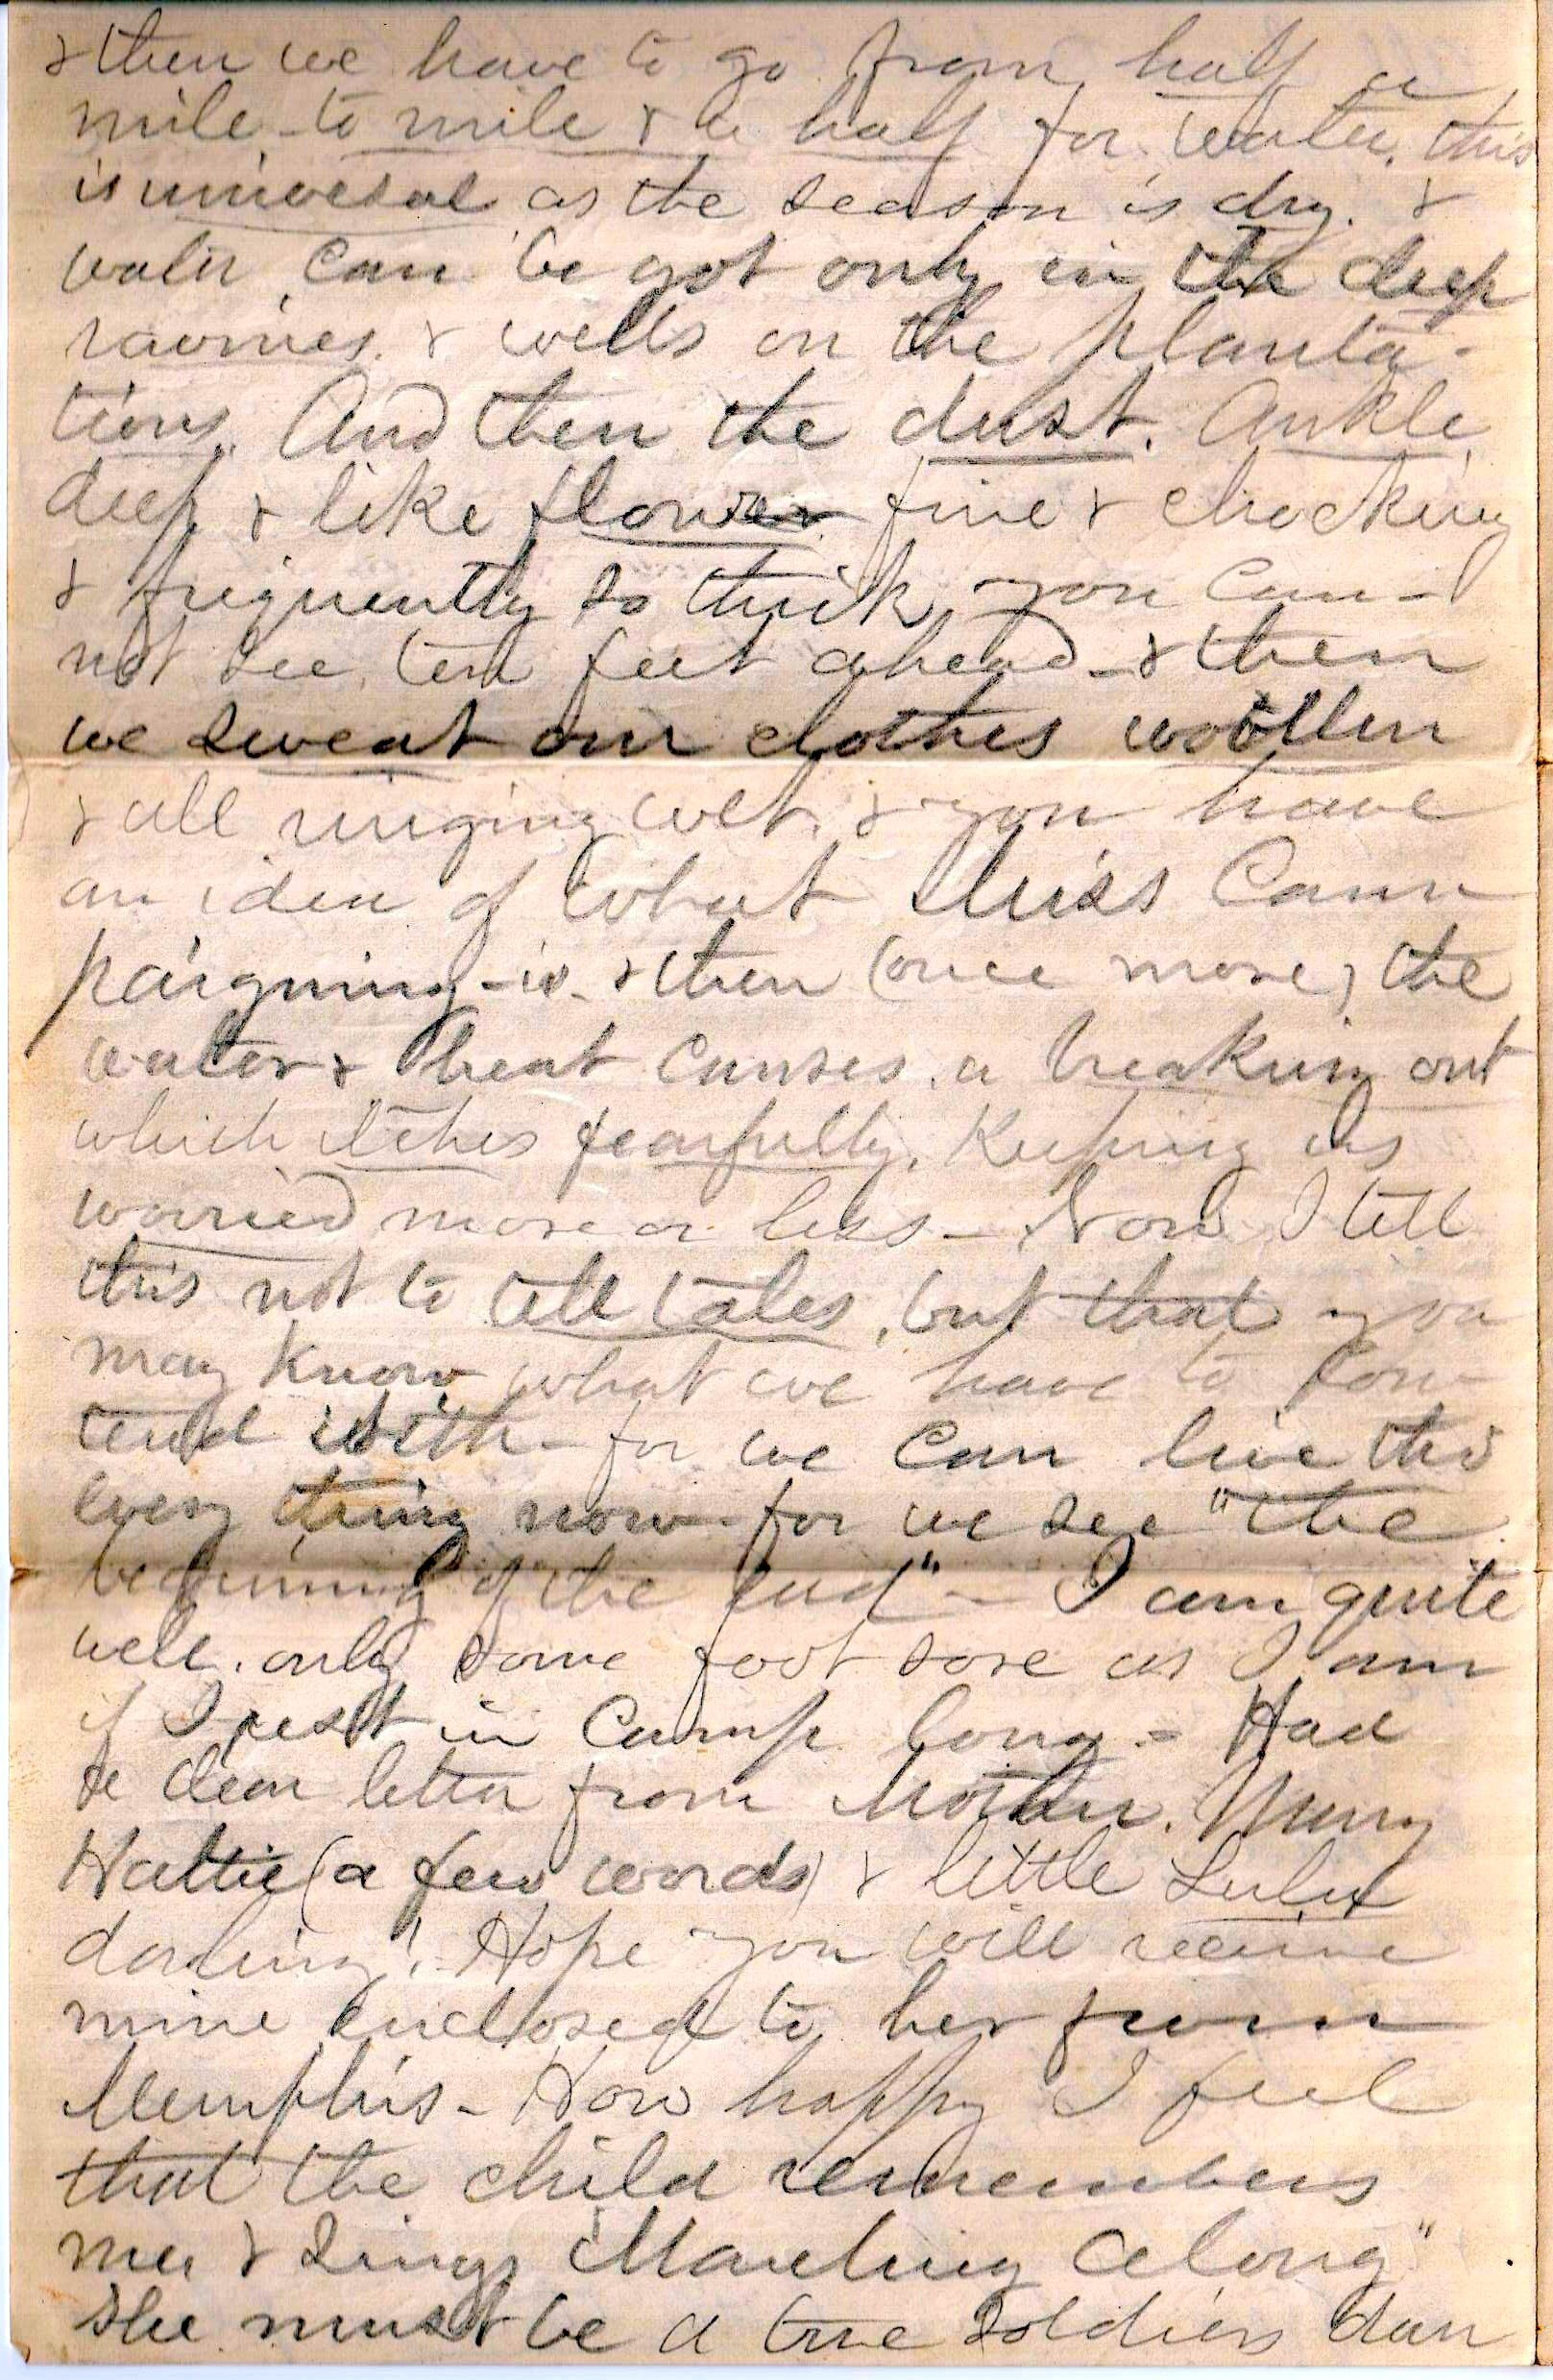 & then we have to go from half a
mile to mile & a half for water, this
is univesal as the season is dry. &
water can be got only in the deep
ravines. & wells on the planta-
tions. And then the dust. Ankle
deep & like flower fine & chocking
& friquently so thick you can-
not see ten feet ahead - & then
we sweat our clothes woollen
& all ringing wet. & you have
an idea of what Miss Cam
paigning - is - & then (once more) the
water & heat causes a breaking out
which itches fearfully. Keeping us
worried more or less - Now I tell
this not to tell tales, but that you
may know what we have to con-
tend with - for we can live thro
every thing now - for we see "the
beginning of the end" - I am quite
well. only some foot sore as I am
if I rest in Camp long - Had
a dear letter from Mother. Mury
Hattie (a few words) & little Lulu
darling! - Hope you will receive
mine enclosed to her from
Memphis - How happy I feel
that the child remembers
me & sings "Marching Along"
She must be a true soldiers dau